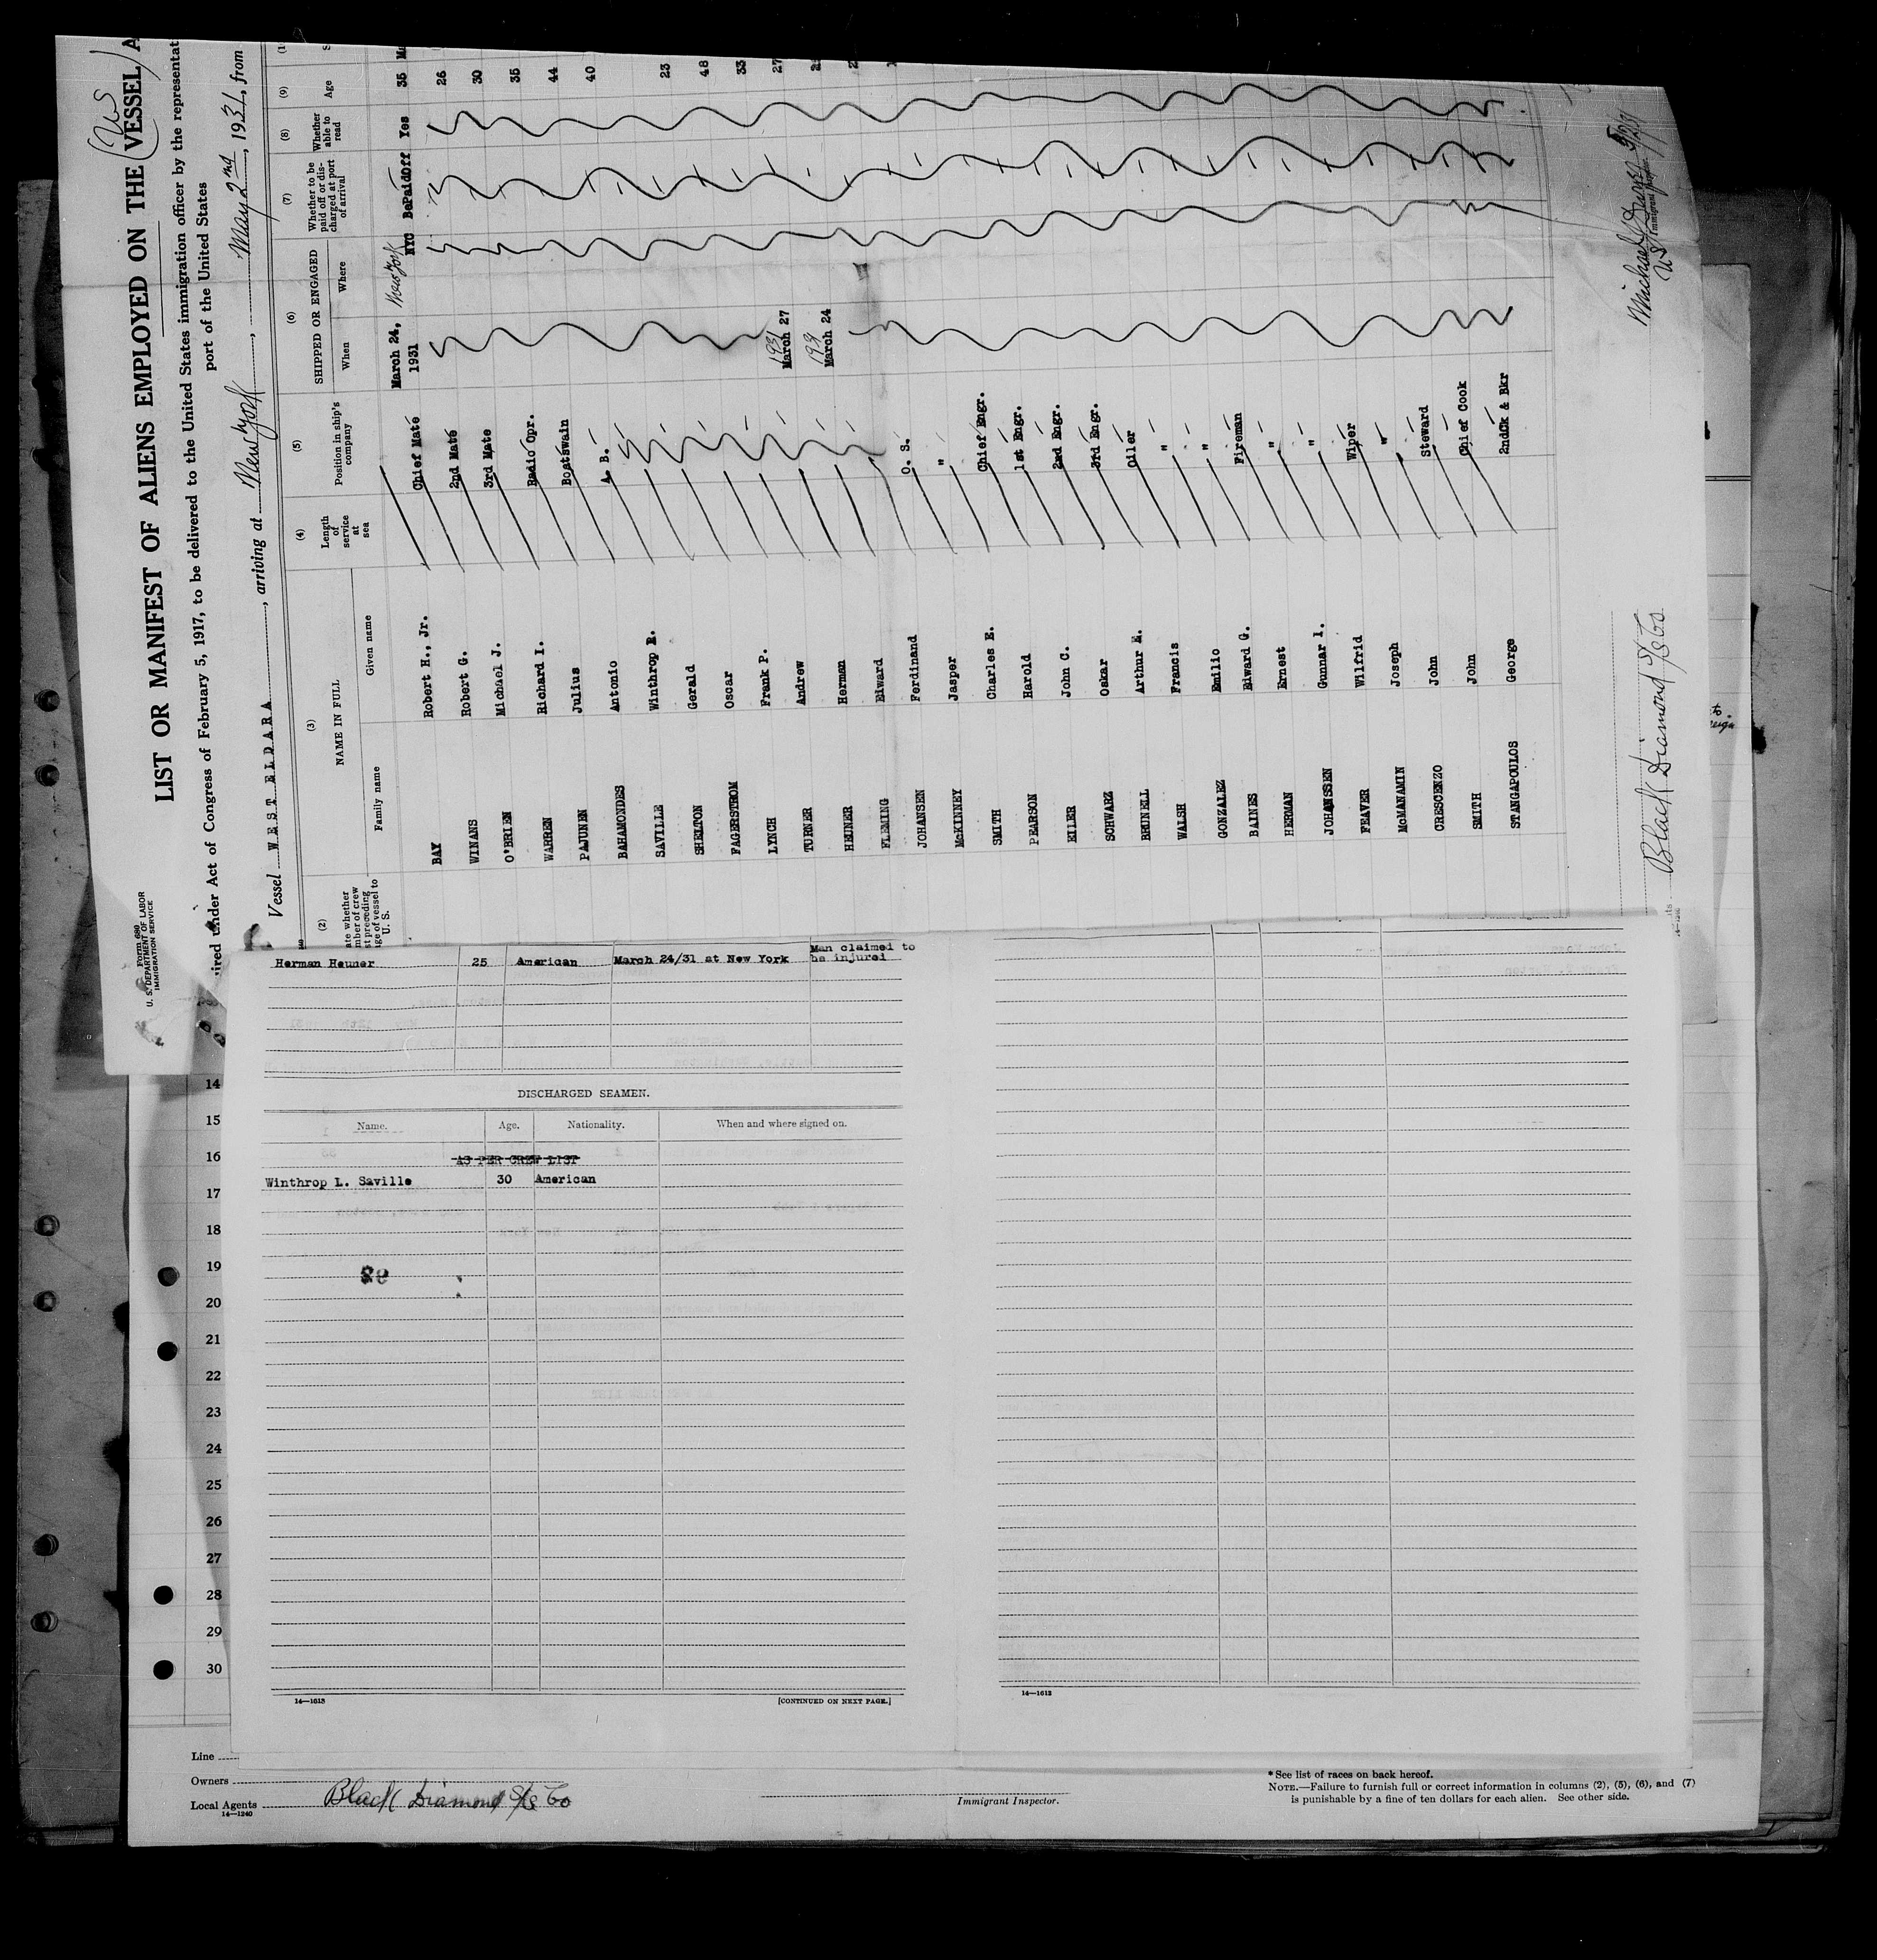 LIST OR MANIFEST OF ALIENS EMPLOYED ON THE VESSEL A
(US)
Form 680
U. S. DEPARTMENT OF LABOR
IMMIGRATION SERVICE
ired under Act of Congress of February 5, 1917, to be delivered to the United States immigration officer by the representat
port of the United States
Vessel WEST ELDARA, arriving at New York, May 2nd, 1931, from
(2) (3) (4) (5) (6) (7) (8) (9)
ate whether
mber of crew
st preceding
ge of vessel to
U. S.
NAME IN FULL
Family name Given name
Length
of
service
at
sea
Position in ship's
company
SHIPPED OR ENGAGED
When Where
Whether to be
paid off or dis-
charged at port
of arrival
Whether
able to
read
Age
March 24,
1931 New York NYC BePaidOff Yes 35
BAY Robert H., Jr. Chief Mate 26
WINANS Robert G. 2nd Mate 30
O'BRIEN Michael J. 3rd Mate 35
WARREN Richard I. Radio Opr. 44
PAJUNEN Julius Boatswain 40
BAHAMONDES Antonio A. B.
SAVILLE Winthrop R. 23
SHELTON Gerald 48
FAGERSTROM Oscar 33
LYNCH Frank P. 1931 March 27 27
TURNER Andrew 1931 March 24
HEUNER Herman
FLEMING Edward
JOHANSEN Ferdinand O. S.
McKINNEY Jasper "
SMITH Charles E. Chief Engr.
PEARSON Harold 1st Engr.
EILER John C. 2nd Engr.
SCHWARZ Oskar 3rd Engr.
BRUNELL Arthur E. Oiler
WALSH Francis "
GONZALEZ Emilio "
BAINES Edward G. Fireman
HERMAN Ernest "
JOHANSSEN Gunnar I. "
FEAVER Wilfrid Wiper
McMANAMIN Joseph "
CRESCENZO John Steward
SMITH John Chief Cook
STANGAPOULOS George 2ndCk & Bkr
Black Diamond S/S Co
Michael
Herman Heuner 25 American March 24/31 at New York Man claimed to
be injured
DISCHARGED SEAMEN.
Name. Age. Nationality. When and where signed on.
AS PER CREW LIST
Winthrop L. Saville 30 American
14—1613 [CONTINUED ON NEXT PAGE.]
14—1613
14
15
16
17
18
19
20
21
22
23
24
25
26
27
28
29
30
Line
Owners
Local Agents Black Diamond S/S Co
14—1240
Immigrant Inspector.
* See list of races on back hereof.
NOTE.—Failure to furnish full or correct information in columns (2), (5), (6), and (7)
is punishable by a fine of ten dollars for each alien. See other side.